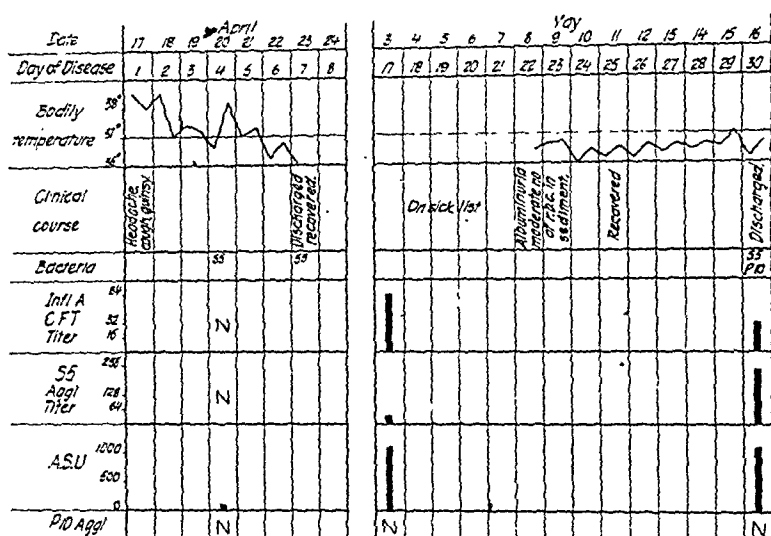 April Yay
Date 17 18 19 20 21 22 23 24 3 4 5 6 7 8 9 10 11 12 13 14 15 16
Day of Disease 1 2 3 4 5 6 7 8 17 18 19 20 21 22 23 24 25 26 27 28 29 30
Bodily 38°
temperature 37°
36°
Clinical
course
Headache,
cough quinsy
Discharged
recovered
On sick list
Albuminuria
moderate no
of r.b.c. in
sediment.
Recovered
Discharged
Bacteria S5 S5 S5
P10
Infl A 64
CFT 32
Titer 16
Z
S5 256
Aggl 128
Titer 64
Z
A.S.U 1000
500
0
P10 Aggl Z Z Z